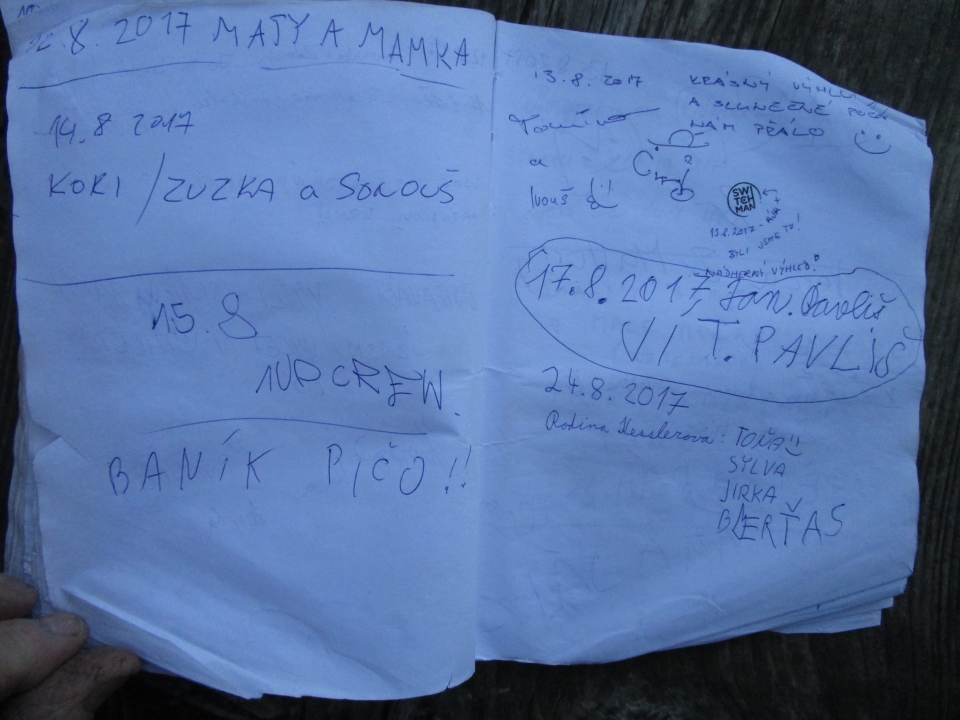 12.8. 2017 MATY A MAMKA
14.8 2017
KORI / ZUZKA a SONOUŠ
15.8
1UP CREW.
BANÍK PIČO!!
13.8.2017
KRÁSNÝ VÝHLED
A SLUNEČNÉ
NÁM PŘÁLO
a
Ivouš
SWITCHMAN
13.8.2017
BYLI JSME TU!
NÁDHERNÝ VÝHLED!
17.8.2017, Jan. Pavliš
VIT. PAVLIŠ
24.8.2017
Rodina Kesslerova: TOŇA
SYLVA
JIRKA
BLERŤAS